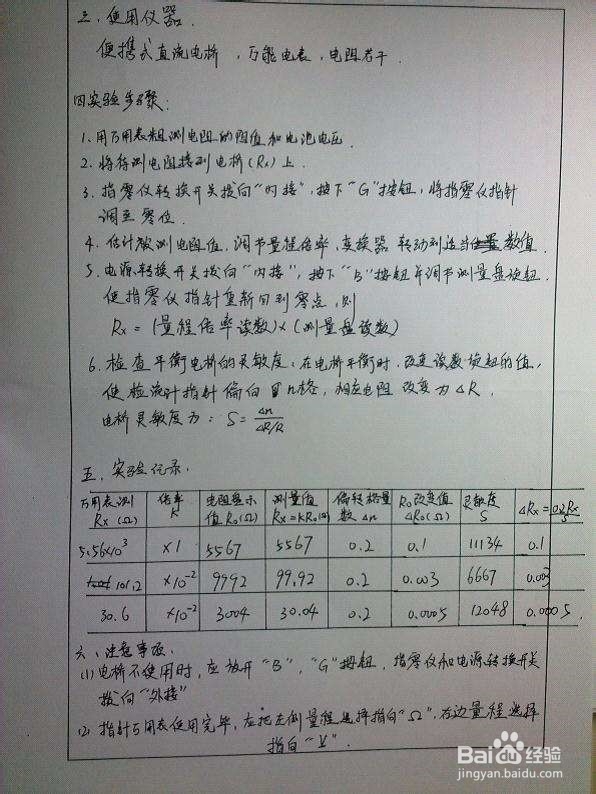 三、使用仪器.
便携式直流电桥，万能电表，电阻若干.
四实验步骤.
1.用万用表粗测电阻的阻值和电池电压.
2.将待测电阻接到电桥(Rx)上.
3.指零仪转换开关拨向“内接”,按下“G”按钮,将指零仪指针
调至零位.
4.估计被测电阻值,调节量程倍率,变换器转动到适当数值.
5.电源转换开关拨向“内接”,按下“B”按钮并调节测量盘旋钮
使指零仪指针重新回到零点,则
Rx=(量程倍率读数)×(测量盘读数)
6.检查平衡电桥的灵敏度:在电桥平衡时,改变读数旋钮的值,
使检流计指针偏向n格,相应电阻改变为△R.
电桥灵敏度为: S=△n/△R/R
五、实验记录.
万用表测Rx(Ω) 倍率K 电阻显示值R0(Ω) 测量值Rx=KR0(Ω) 偏转格量数△n R0改变值△R0(Ω) 灵敏度S △Rx=0.2Rx/S
5.56×10³ ×1 5567 5567 0.2 0.1 11134 0.1
101.2 ×10⁻² 9992 99.92 0.2 0.003 6667 0.003
30.6 ×10⁻² 3004 30.04 0.2 0.0005 12048 0.0005
六、注意事项.
(1)电桥不使用时,应放开“B”,“G”按钮,指零仪和电源转换开关
拨向“外接”
(2)指针万用表使用完毕,应把左侧量程选择指向“Ω”,右边量程选择
指向“V”.
Bai du 经验
jingyan.baidu.com